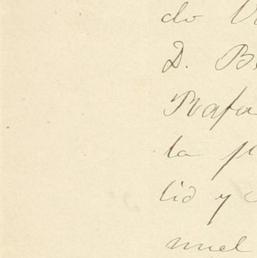 do V
D. B
Rafa
la p
lid y
nuel